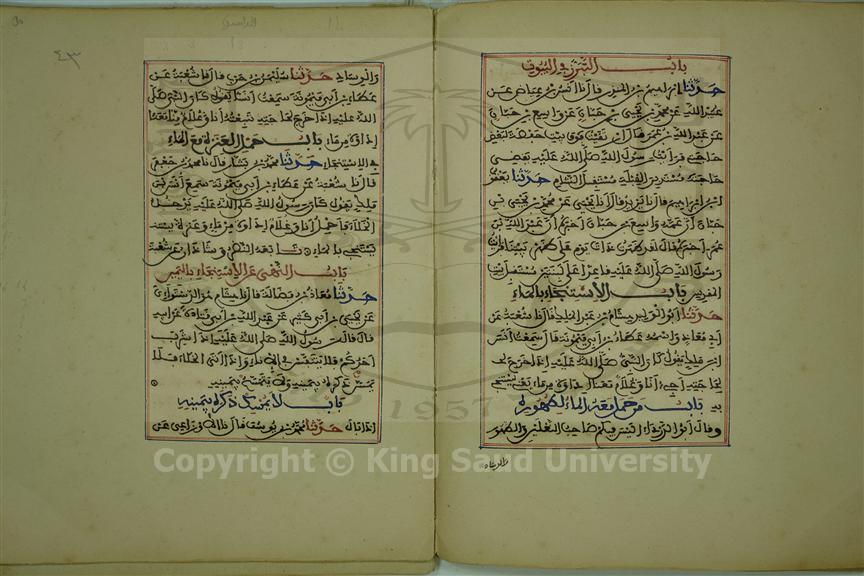 باب التبرز في البيوت
حدثنا ابراهيم بن المنذر قال انا انس بن عياض عن
عبيد الله عن محمد بن يحيى بن حبان عن واسع بن حبان
عن عبد الله بن عمر قال ارتقيت فوق بيت حفصة لبعض
حاجتي فرأيت رسول الله صلى الله عليه يقضي
حاجته مستدبر القبلة مستقبل الشام حدثنا يعقوب
بن ابراهيم قال انا يزيد قال انا يحيى عن محمد بن يحيى بن
حبان ان عمه واسع بن حبان اخبره ان عبد الله بن
عمر اخبرهم قال لقد ظهرت ذات يوم على ظهر بيتنا فرأيت
رسول الله صلى الله عليه قاعدا على لبنتين مستقبل بيت
المقدس باب الاستنجاء بالماء
حدثنا ابو الوليد هشام بن عبد الملك قال انا شعبة عن
ابي معاذ واسمه عطاء بن ابي ميمونة قال سمعت انس
ابن ملك يقول كان النبي صلى الله عليه اذا خرج
لحاجته اجيء انا وغلام معنا اداوة من ماء يعني يستنجي
به باب من حمل معه الماء لطهوره
وقال ابو الدرداء اليس فيكم صاحب النعلين والطهور
والوساد
٤٣
والوساد حدثنا سليمن بن حرب قال انا شعبة عن
عطاء بن ابي ميمونة سمعت انسا يقول كان النبي صلى
الله عليه اذا خرج لحاجته تبعته انا وغلام منا معنا
اداوة من ماء باب حمل العنزة مع الماء
في الاستنجاء حدثنا محمد بن بشار قال نا محمد بن جعفر
قال انا شعبة عن عطاء بن ابي ميمونة سمع انس بن
ملك يقول كان رسول الله صلى الله عليه يدخل
الخلاء فاحمل انا وغلام اداوة من ماء وعنزة
يستنجي بالماء تابعه النضر وشاذان عن شعبة
باب النهي عن الاستنجاء باليمين
حدثنا معاذ بن فضالة قال انا هشام هو الدستوائي
عن يحيى بن ابي كثير عن عبد الله بن ابي قتادة عن ابيه
قال قال رسول الله صلى الله عليه اذا شرب
احدكم فلا يتنفس في الاناء واذا اتى الخلاء فلا
يمس ذكره بيمينه ولا يتمسح بيمينه
باب لا يمسك ذكره بيمينه
اذا بال حدثنا محمد بن يوسف قال انا الاوزاعي عن
Copyright © King Saud University
1957